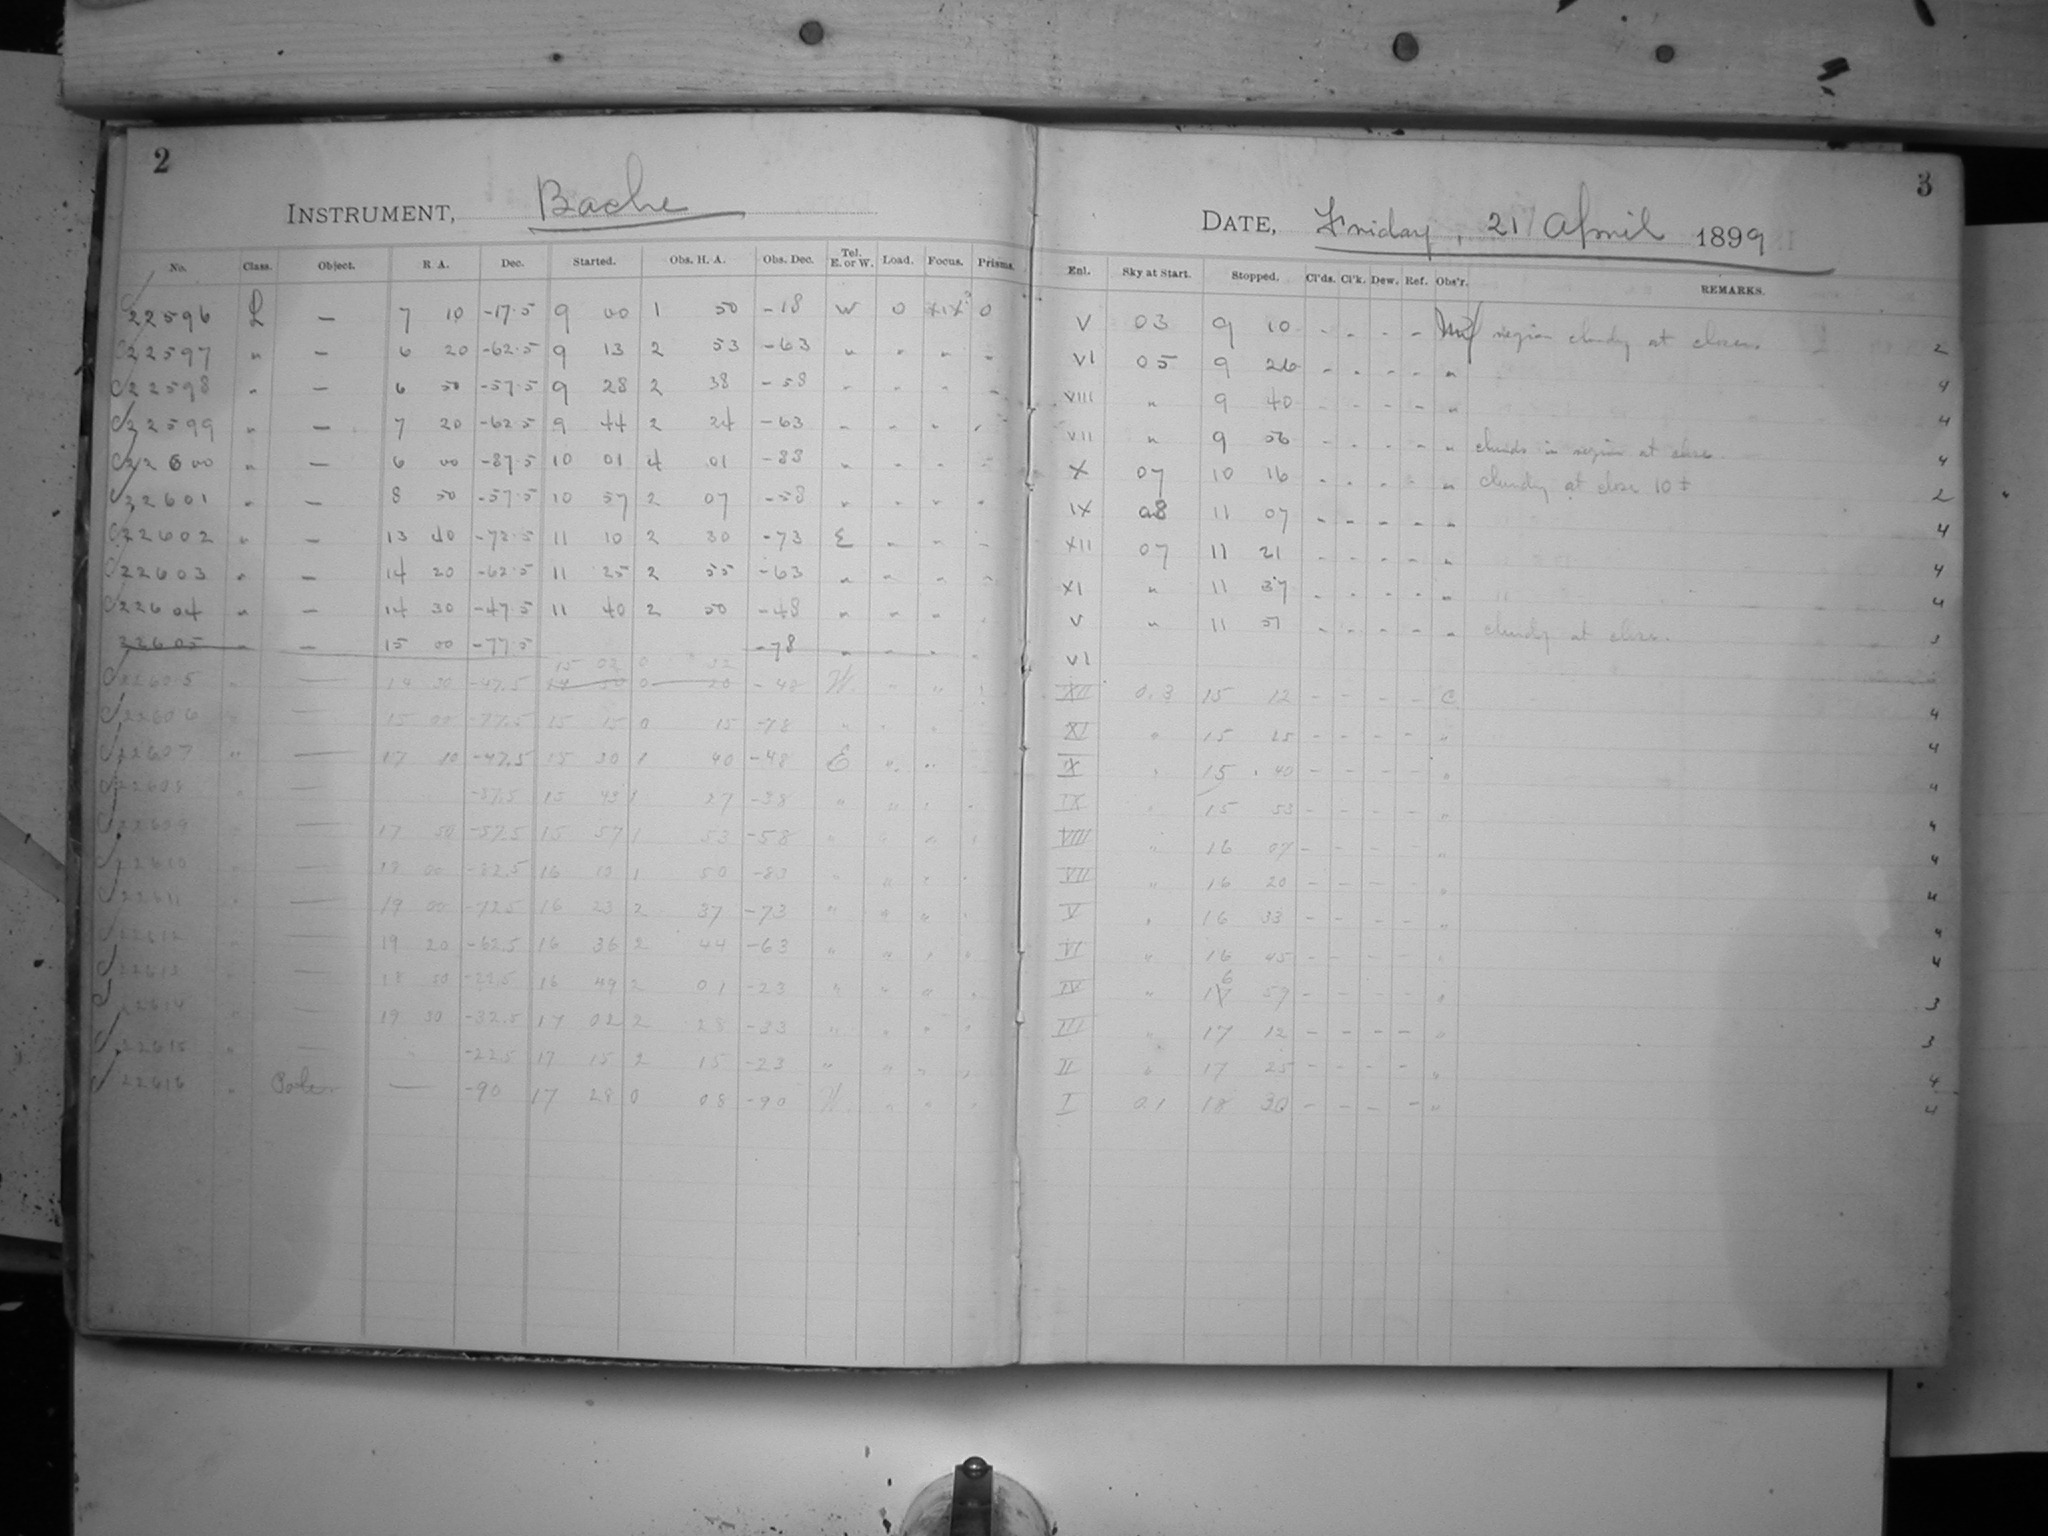 2
INSTRUMENT, Bache
No. Class. Object. R A. Dec. Started. Obs. H. A. Obs. Dec. Tel. E. or W. Load. Focus. Prisms.
22596 L — 7 10 -17.5 9 00 1 50 -18 W 0 XIX 0
22597 " — 6 20 -62.5 9 13 2 53 -63 " " " "
22598 " — 6 50 -57.5 9 28 2 38 -58 " " " "
22599 " — 7 20 -62.5 9 44 2 24 -63 " " " "
22600 " — 6 00 -87.5 10 01 4 01 -88 " " " "
22601 " — 8 50 -57.5 10 57 2 07 -58 " " " "
22602 " — 13 40 -72.5 11 10 2 30 -73 E " " "
22603 " — 14 20 -62.5 11 25 2 55 -63 " " " "
22604 " — 14 30 -47.5 11 40 2 50 -48 " " " "
22605 " — 15 00 -77.5 -78 " " " "
15 02 0 32
22605 " — 14 30 -47.5 14 50 0 20 -48 W. " " "
22606 " — 15 00 -77.5 15 15 0 15 -78 " " "
22607 " — 17 10 -47.5 15 30 1 40 -48 E " "
22608 " — -37.5 15 43 1 27 -38 " " " "
22609 " — 17 50 -57.5 15 57 1 53 -58 " " " "
22610 " — 18 00 -82.5 16 10 1 50 -83 " " " "
22611 " — 19 00 -72.5 16 23 2 37 -73 " " " "
22612 " — 19 20 -62.5 16 36 2 44 -63 " " " "
22613 " — 18 50 -22.5 16 49 2 01 -23 " " " "
22614 " — 19 30 -32.5 17 02 2 28 -33 " " " "
22615 " — " -22.5 17 15 2 15 -23 " " " "
22616 " Pole — -90 17 28 0 08 -90 W. " " "
3
DATE, Friday, 21 April 1899
Enl. Sky at Start. Stopped. Cl'ds. Cl'k. Dew. Ref. Obs'r. REMARKS.
V 03 9 10 - - - - region cloudy at close. 2
VI 05 9 26 - - - - " 4
VIII " 9 40 - - - - " 4
VII " 9 56 - - - - " clouds in region at close 4
X 07 10 16 - - - - " cloudy at close 10 ± 2
IX 08 11 07 - - - - " 4
XII 07 11 21 - - - - " 4
XI " 11 37 - - - - " 4
V " 11 51 - - - - " cloudy at close. 3
VI
XII 0.3 15 12 - - - - C. 4
XI " 15 25 - - - - " 4
IX " 15 40 - - - - " 4
IX " 15 53 - - - - " 4
VIII " 16 07 - - - - " 4
VII " 16 20 - - - - " 4
V " 16 33 - - - - " 4
VI " 16 45 - - - - " 4
IV " 16 59 - - - - " 3
III " 17 12 - - - - " 3
II " 17 25 - - - - " 4
I 0.1 18 30 - - - - " 4